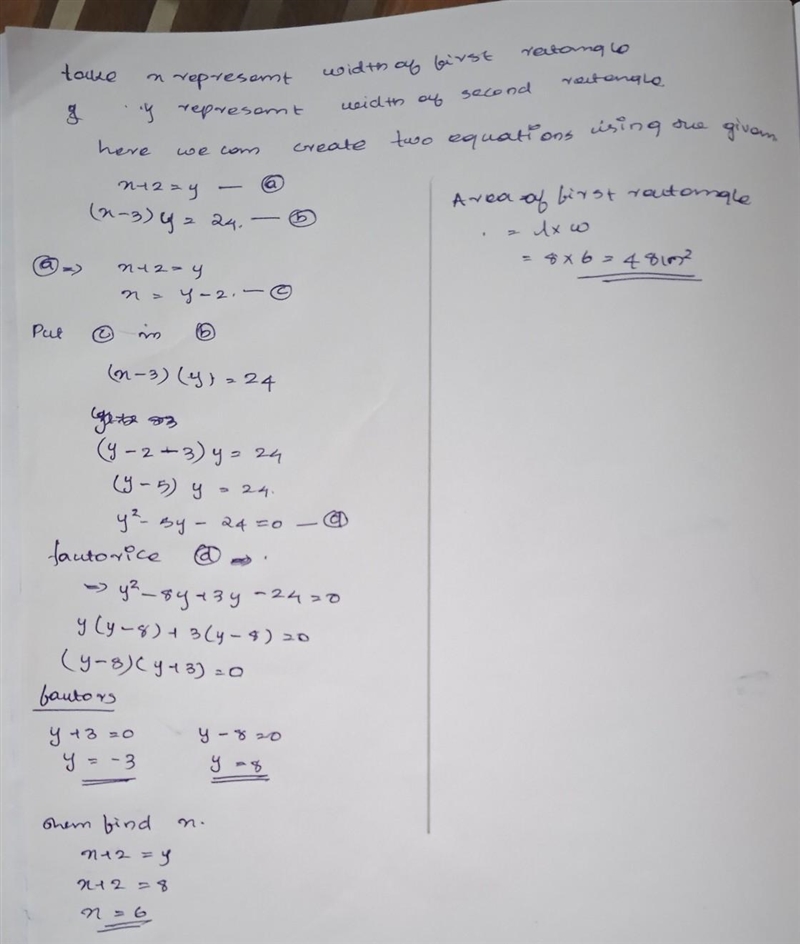 take x represent width of first rectangle
y represent width of second rectangle
here we can create two equations using the given
x+2=y — ⓐ
(x-3)y = 24. — ⓑ
ⓐ => x+2=y
x = y-2. — ⓒ
Put ⓒ in ⓑ
(x-3)(y) = 24
(y-2-3)y = 24
(y-5) y = 24.
y²-5y-24=0 — ⓓ
factorice ⓓ =>.
=> y²-8y+3y-24=0
y(y-8)+3(y-8)=0
(y-8)(y+3)=0
factors
y+3=0 y-8=0
y = -3 y=8
then find x.
x+2=y
x+2=8
x=6
Area of first rectangle
= l×w
= 8×6 = 48m²